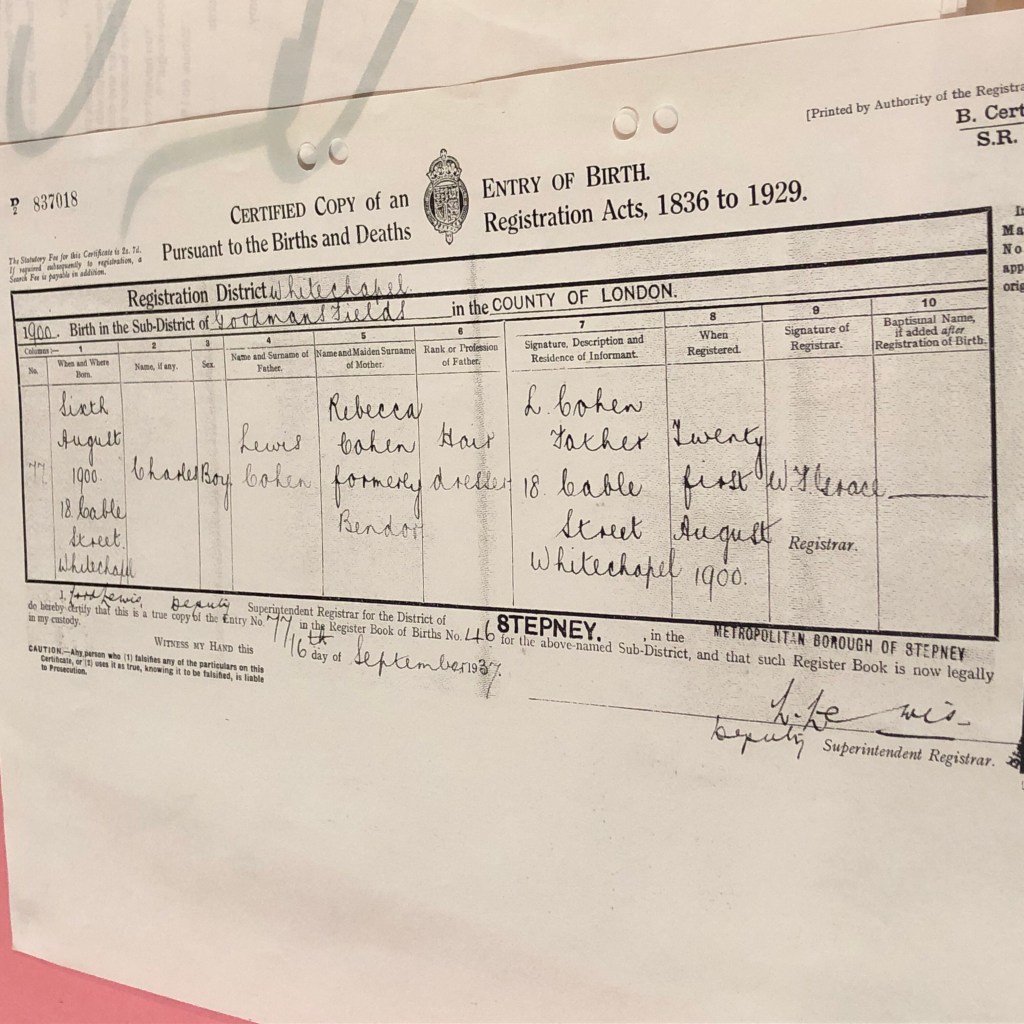 [Printed by Authority of the Registra
B. Cert
S.R.
837018
CERTIFIED COPY of an ENTRY OF BIRTH.
Pursuant to the Births and Deaths Registration Acts, 1836 to 1929.
The Statutory Fee for this Certificate is 2s. 7d.
If required subsequently to registration, a
Search Fee is payable in addition.
In
Ma
No
app
orig
Registration District Whitechapel
1900. Birth in the Sub-District of Goodmans Fields in the COUNTY OF LONDON.
Columns:— 1 2 3 4 5 6 7 8 9 10
No. When and Where Born. Name, if any. Sex. Name and Surname of Father. Name and Maiden Surname of Mother. Rank or Profession of Father. Signature, Description and Residence of Informant. When Registered. Signature of Registrar. Baptismal Name, if added after Registration of Birth.
77 Sixth August 1900. 18 Cable Street. Whitechapel
Charles
Boy
Lewis Cohen
Rebecca Cohen formerly Bendor
Hair dresser
L. Cohen Father 18. Cable Street Whitechapel
Twenty first August 1900.
W. T. Grace Registrar.
I, Lewis, Deputy Superintendent Registrar for the District of STEPNEY. , in the METROPOLITAN BOROUGH OF STEPNEY
do hereby certify that this is a true copy of the Entry No. 77 in the Register Book of Births No. 46 for the above-named Sub-District, and that such Register Book is now legally
in my custody.
WITNESS MY HAND this 16th day of September, 1937.
CAUTION.—Any person who (1) falsifies any of the particulars on this
Certificate, or (2) uses it as true, knowing it to be falsified, is liable
to Prosecution.
L. Lewis.
Deputy Superintendent Registrar.